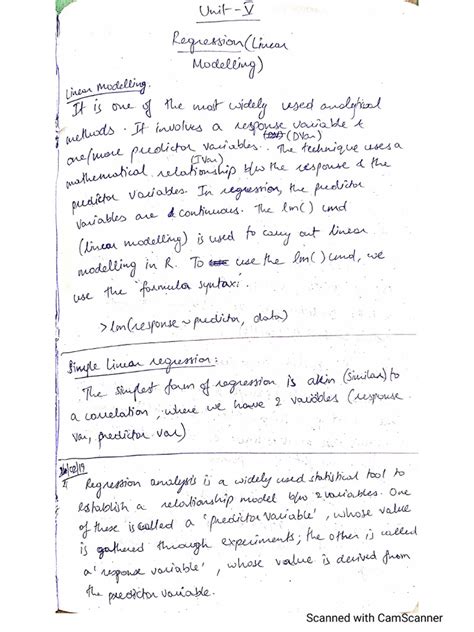 Unit-V
Regression (Linear
Modelling)
Linear Modelling.
It is one of the most widely used analytical
methods. It involves a response variable &
(DVar)
one/more predictor variables. The technique uses a
(IVar)
mathematical relationship b/w the response & the
predictor variables. In regression, the predictor
variables are continuous. The lm() cmd
(linear modelling) is used to carry out linear
modelling in R. To use the lm() cmd, we
use the formula syntax:
>lm(response ~ predictor, data)
Simple Linear regression:
The simplest form of regression is akin (Similar) to
a correlation, where we have 2 variables (response
var, predictor var)
/02/19
Regression analysis is a widely used statistical tool to
establish a relationship model b/w 2 variables. One
of these is called a 'predictor variable', whose value
is gathered through experiments; the other is called
a 'response variable', whose value is derived from
the predictor variable.
Scanned with CamScanner